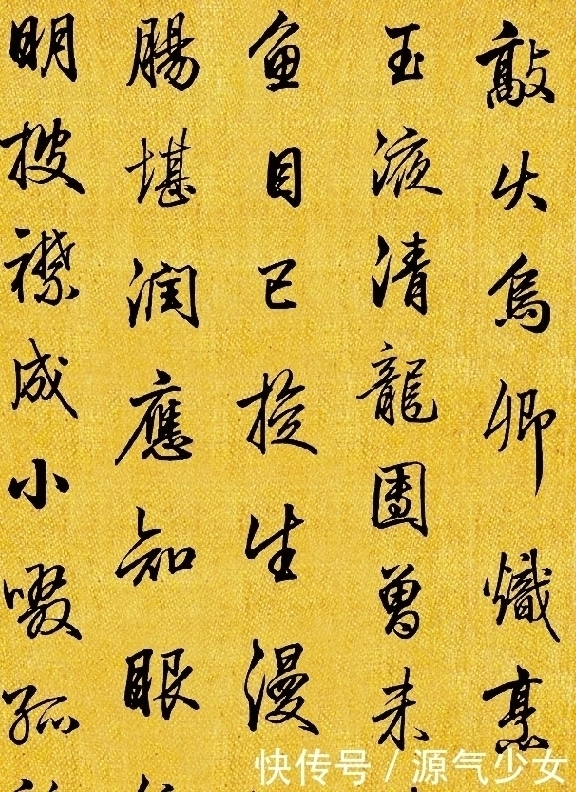 敲火烏卿熾烹
玉液清龍團曾未
魚目已撿生漫
腸堪潤應知眼
明披襟成小啜孤
快传号／源气少女